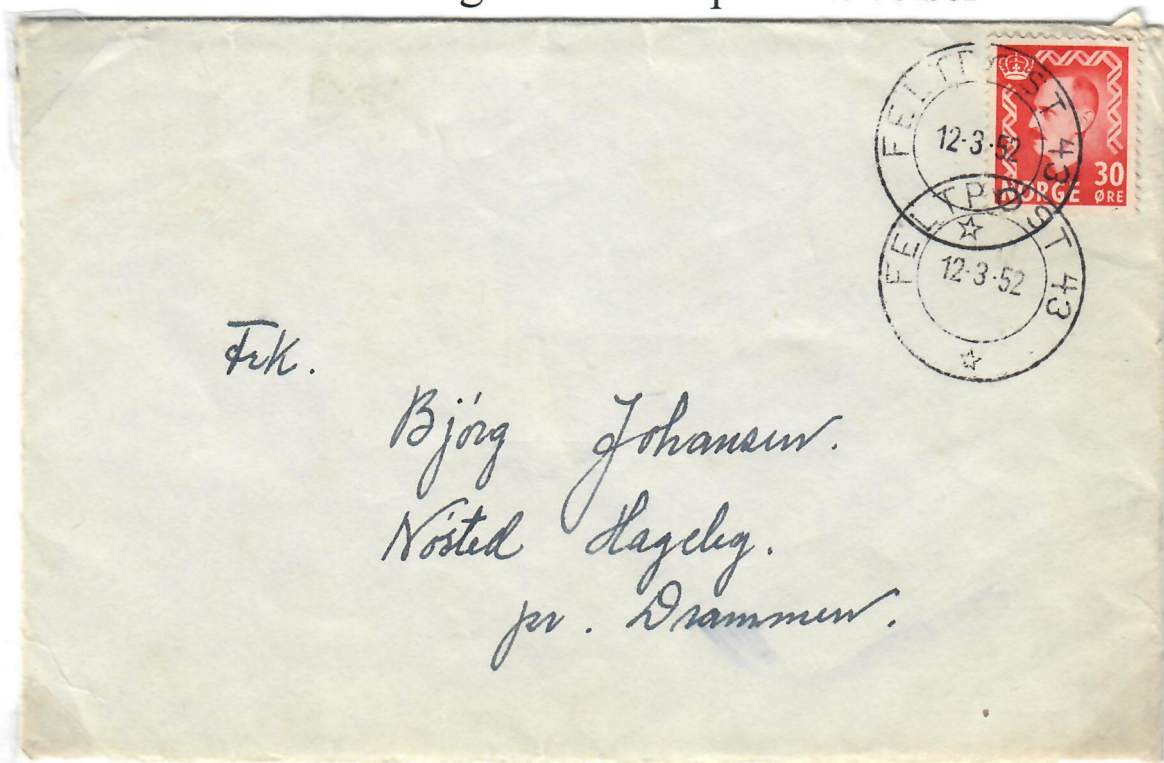 FELTPOST 43
12-3-52
30
NORGE ØRE
FELTPOST 43
12-3-52
Frk.
Bjórg Johansen.
Nósted Hagebg.
pr. Drammen.